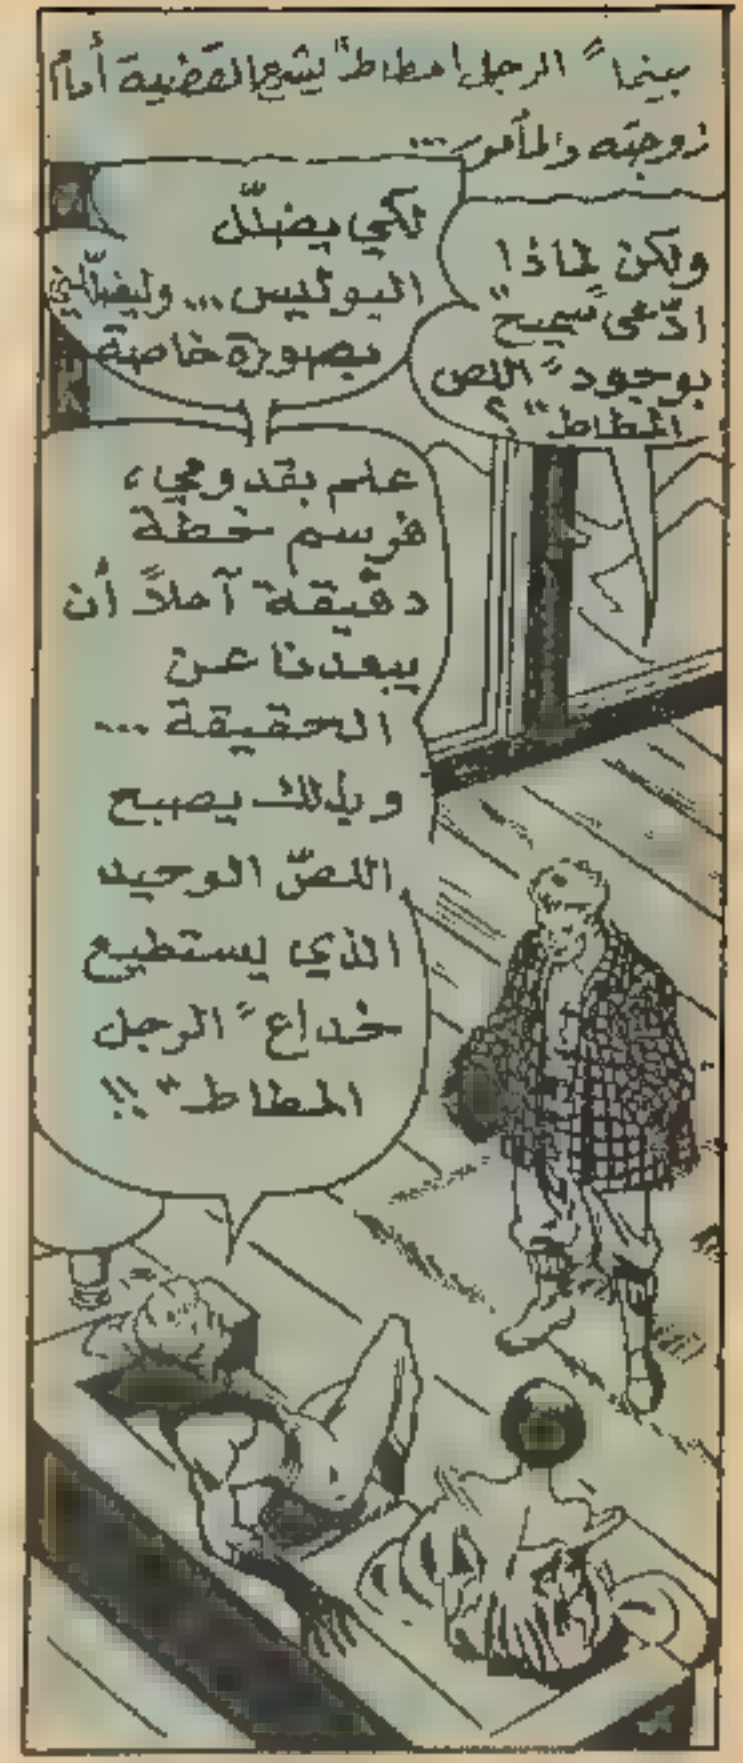 بينما "الرجل المطاط" يشرح القضية أمام
زوجته والمأمور...
ولكن لماذا
ادّعى "سميح"
بوجود "اللص
المطاط"؟
لكي يضلّل
البوليس... وليضلّلني
بصورة خاصة
علم بقدومي،
فرسم خطة
دقيقة آملاً أن
يبعدنا عن
الحقيقة...
وبذلك يصبح
اللصّ الوحيد
الذي يستطيع
خداع "الرجل
المطاط"!!